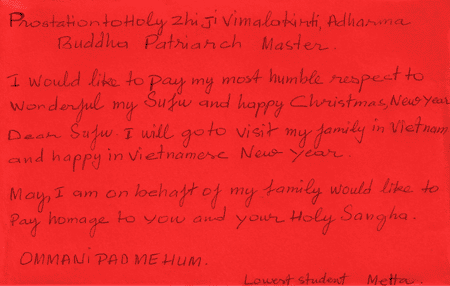 Prostation to Holy Zhi Ji Vimalakirti, Adharma
Buddha Patriarch Master.
I would like to pay my most humble respect to
wonderful my Sufu and happy Christmas, New year
Dear Sufu. I will go to visit my family in Vietnam
and happy in Vietnamese New year.
May, I am on behaft of my family would like to
Pay homage to you and your Holy Sangha.
OMMANIPADMEHUM.
Lowest student Metta.